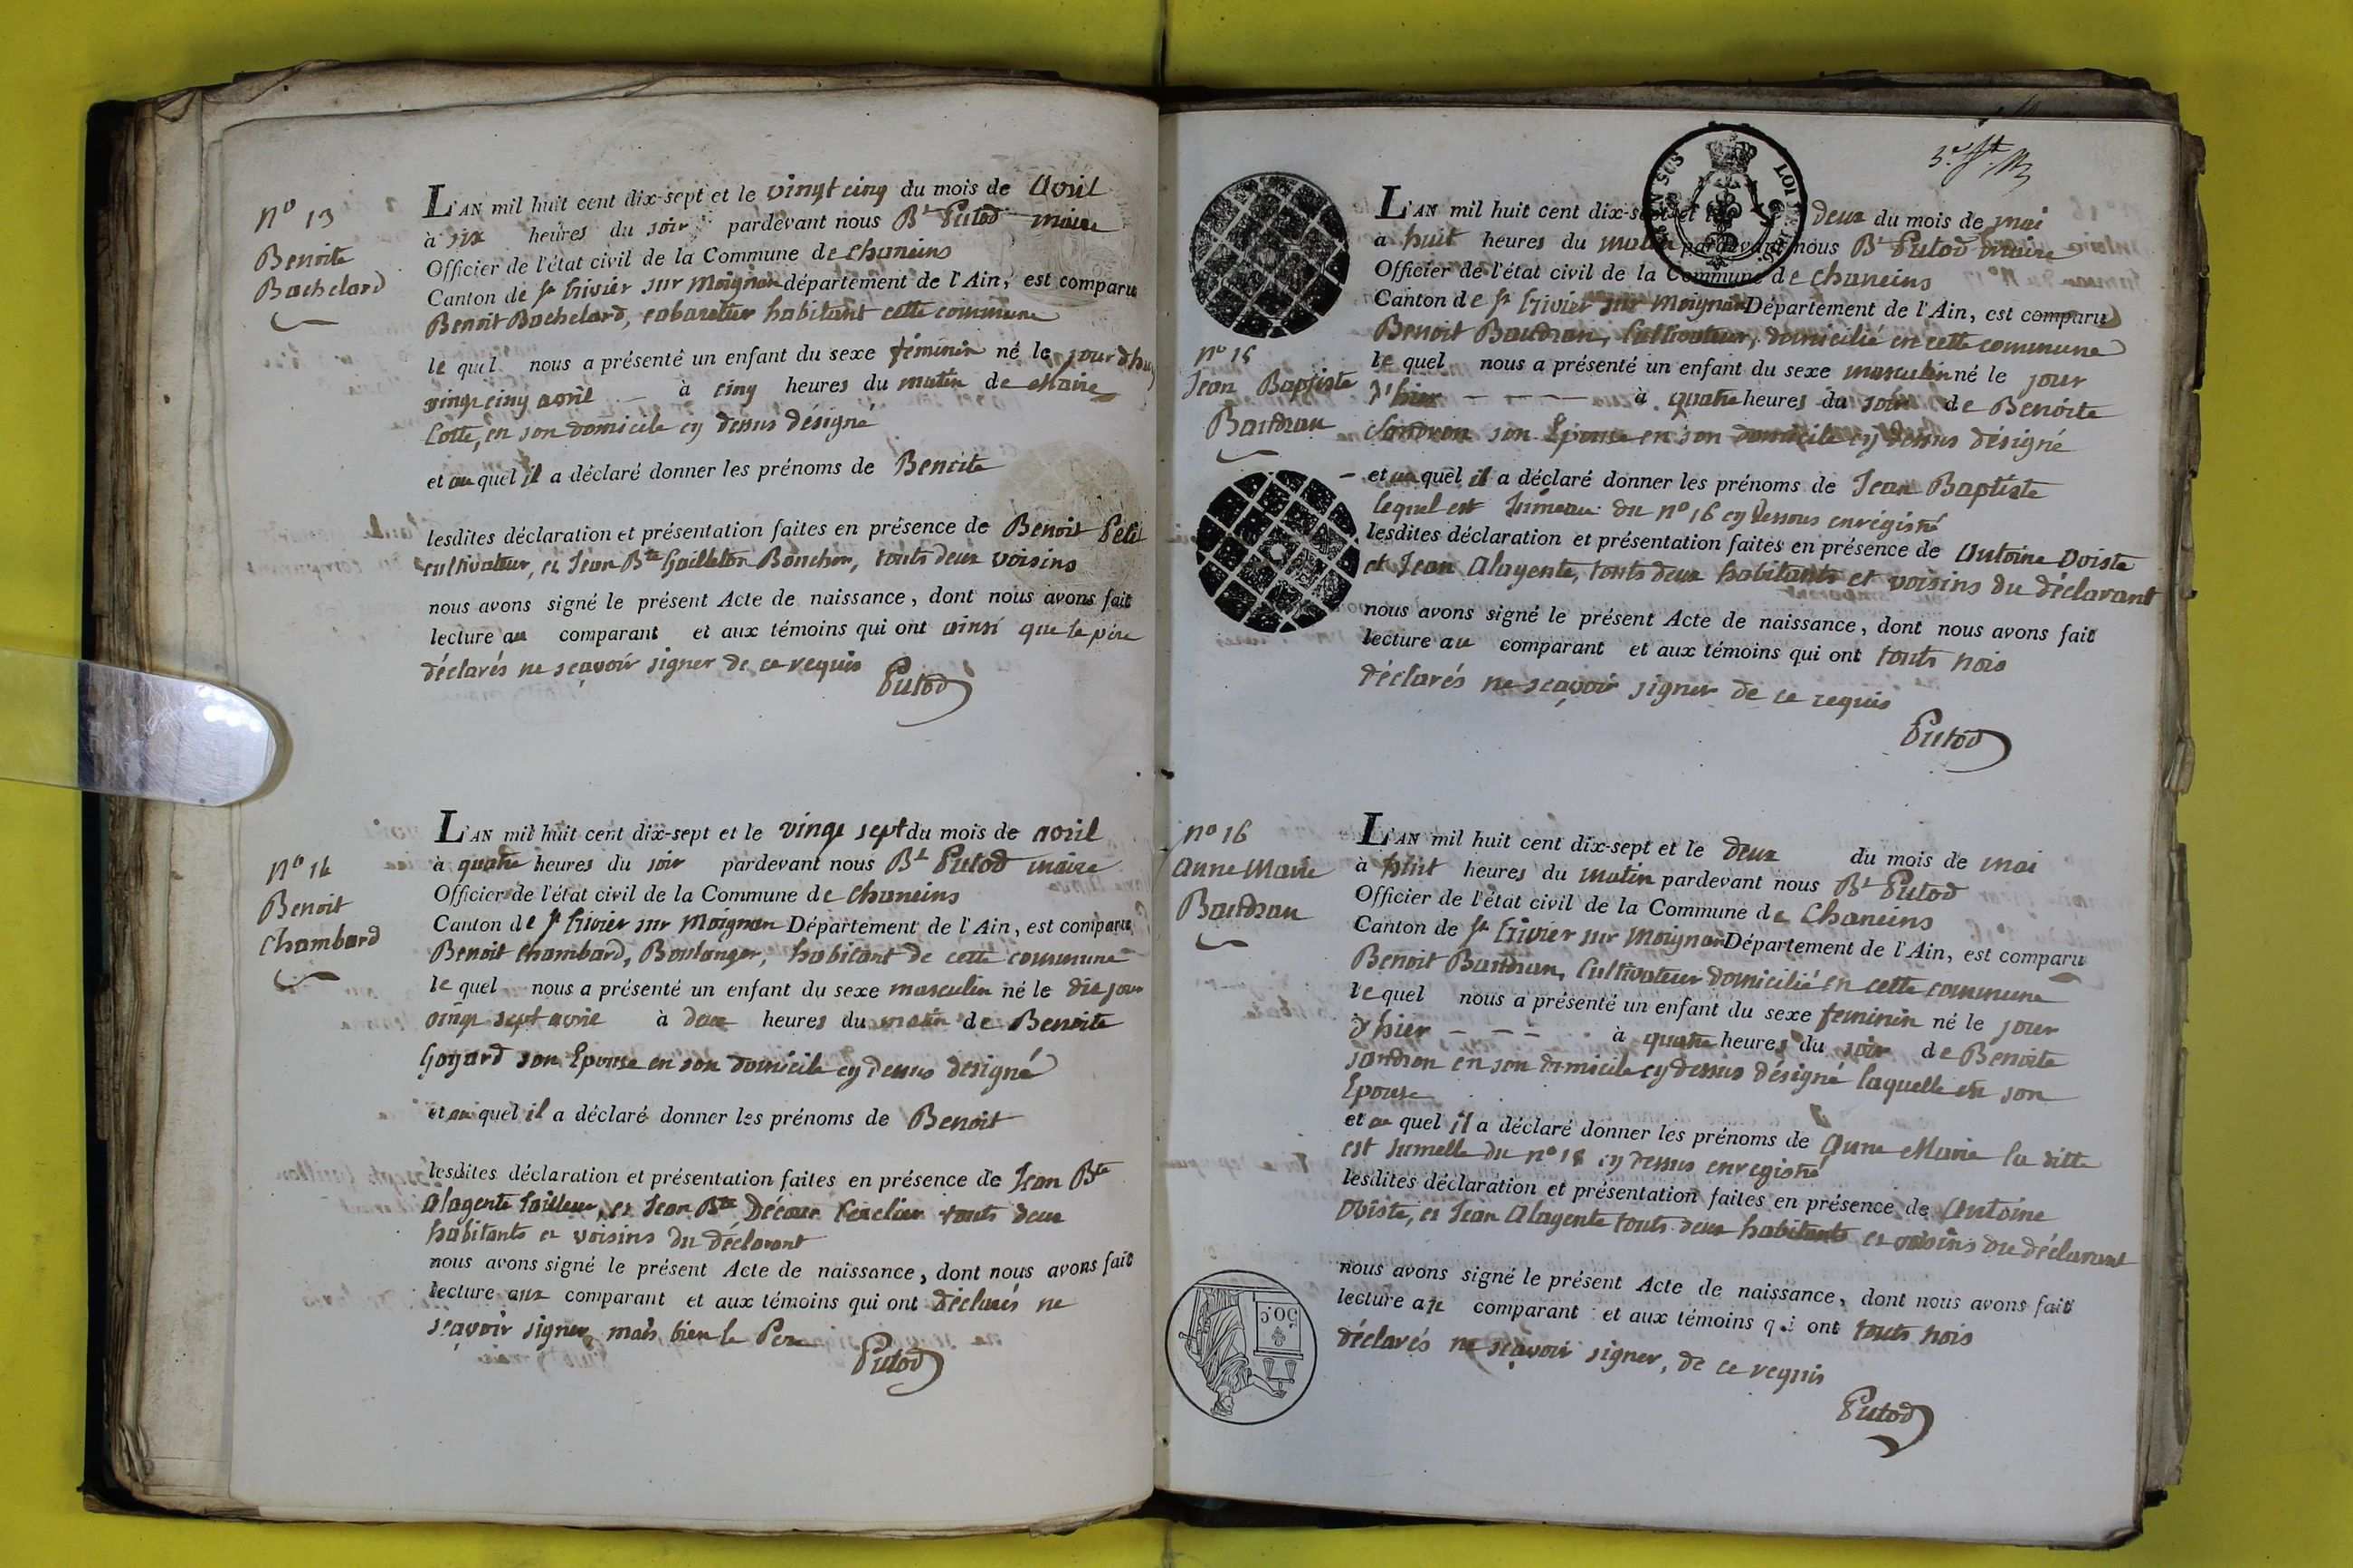 nº 13
Benoite
Bachelard
L'AN mil huit cent dix-sept et le vingt cinq du mois de avril
à six heures du soir pardevant nous Bt Putod maire
Officier de l'état civil de la Commune de chaneins
Canton de St trivier sur Moignan département de l'Ain, est comparu
Benoit Bachelard, cabaretier habitant cette commune
le quel nous a présenté un enfant du sexe féminin né le jour d'huy
vingt cinq avril à cinq heures du matin de Marie
Cotte, en son domicile cy dessus désigné
et au quel il a déclaré donner les prénoms de Benoite
lesdites déclaration et présentation faites en présence de Benoit Petit
cultivateur, et Jean Bte Gailleton Bonchon, touts deux voisins
nous avons signé le présent Acte de naissance, dont nous avons fait
lecture au comparant et aux témoins qui ont ainsi que le père
déclarés ne sçavoir signer de ce requis
Putod
Nº 14
Benoit
Chambard
L'AN mil huit cent dix-sept et le vingt sept du mois de avril
à quatre heures du soir pardevant nous Bt Putod maire
Officier de l'état civil de la Commune de chaneins
Canton de St trivier sur Moignan Département de l'Ain, est comparu
Benoit Chambard, Boulanger, habitant de cette commune
le quel nous a présenté un enfant du sexe masculin né le dit jour
vingt sept avril à deux heures du matin de Benoite
Goyard son Epouse en son domicile cy dessus designé
et au quel il a déclaré donner les prénoms de Benoit
lesdites déclaration et présentation faites en présence de Jean Bte
alagente tailleur, et Jean Bte Décour touts deux
habitants et voisins du déclarant
nous avons signé le présent Acte de naissance, dont nous avons fait
lecture aux comparant et aux témoins qui ont déclarés ne
sçavoir signer mais bien le Pere
Putod
nº 15
Jean Baptiste
Baudran
L'AN mil huit cent dix-sept et le deux du mois de mai
à huit heures du matin pardevant nous Bt Putod maire
Officier de l'état civil de la Commune de chaneins
Canton de St trivier sur Moignan Département de l'Ain, est comparu
Benoit Baudran, Cultivateur, domicilié en cette commune
le quel nous a présenté un enfant du sexe masculin né le jour
d'hier à quatre heures du soir de Benoite
Sandron son Epouse en son domicile cy dessus désigné
et au quel il a déclaré donner les prénoms de Jean Baptiste
lequel est Jumeau du nº 16 cy dessous enregistré
lesdites déclaration et présentation faites en présence de Antoine Doiste
et Jean Alagente, touts deux habitants et voisins du déclarant
nous avons signé le présent Acte de naissance, dont nous avons fait
lecture au comparant et aux témoins qui ont touts trois
déclarés ne sçavoir signer de ce requis
Putod
nº 16
Anne Marie
Baudran
L'AN mil huit cent dix-sept et le deux du mois de mai
à huit heures du matin pardevant nous Bt Putod
Officier de l'état civil de la Commune de Chaneins
Canton de St trivier sur Moignan Département de l'Ain, est comparu
Benoit Baudran, Cultivateur domicilié en cette commune
le quel nous a présenté un enfant du sexe feminin né le jour
d'hier à quatre heures du soir de Benoite
Sandron en son domicile cy dessus désigné laquelle est son
Epouse
et au quel il a déclaré donner les prénoms de Anne Marie la ditte
est Jumelle du nº 15 cy dessus enregistré
lesdites déclaration et présentation faites en présence de Antoine
Doiste, et Jean Alagente touts deux habitants et voisins du déclarant
nous avons signé le présent Acte de naissance, dont nous avons fait
lecture au comparant et aux témoins qui ont touts trois
déclarés ne sçavoir signer, de ce requis
50 C
Putod